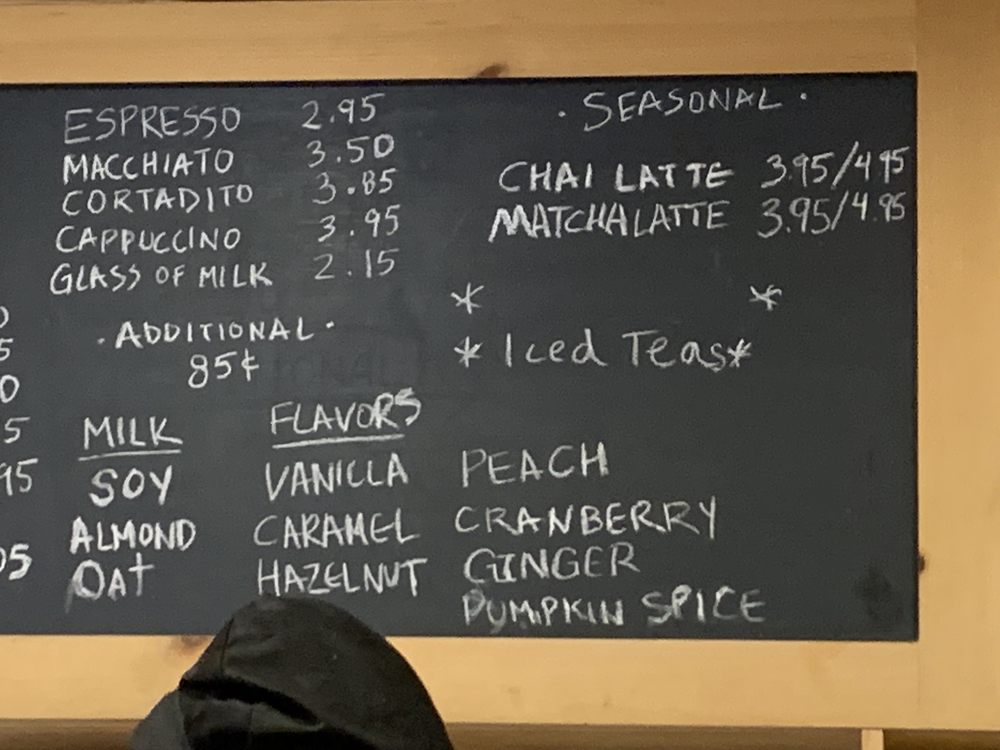 ESPRESSO 2.95
MACCHIATO 3.50
CORTADITO 3.85
CAPPUCCINO 3.95
GLASS OF MILK 2.15
· ADDITIONAL ·
85¢
MILK
SOY
ALMOND
OAT
FLAVORS
VANILLA
CARAMEL
HAZELNUT
PEACH
CRANBERRY
GINGER
PUMPKIN SPICE
· SEASONAL ·
CHAI LATTE 3.95/4.95
MATCHA LATTE 3.95/4.95
* *
* Iced Teas *